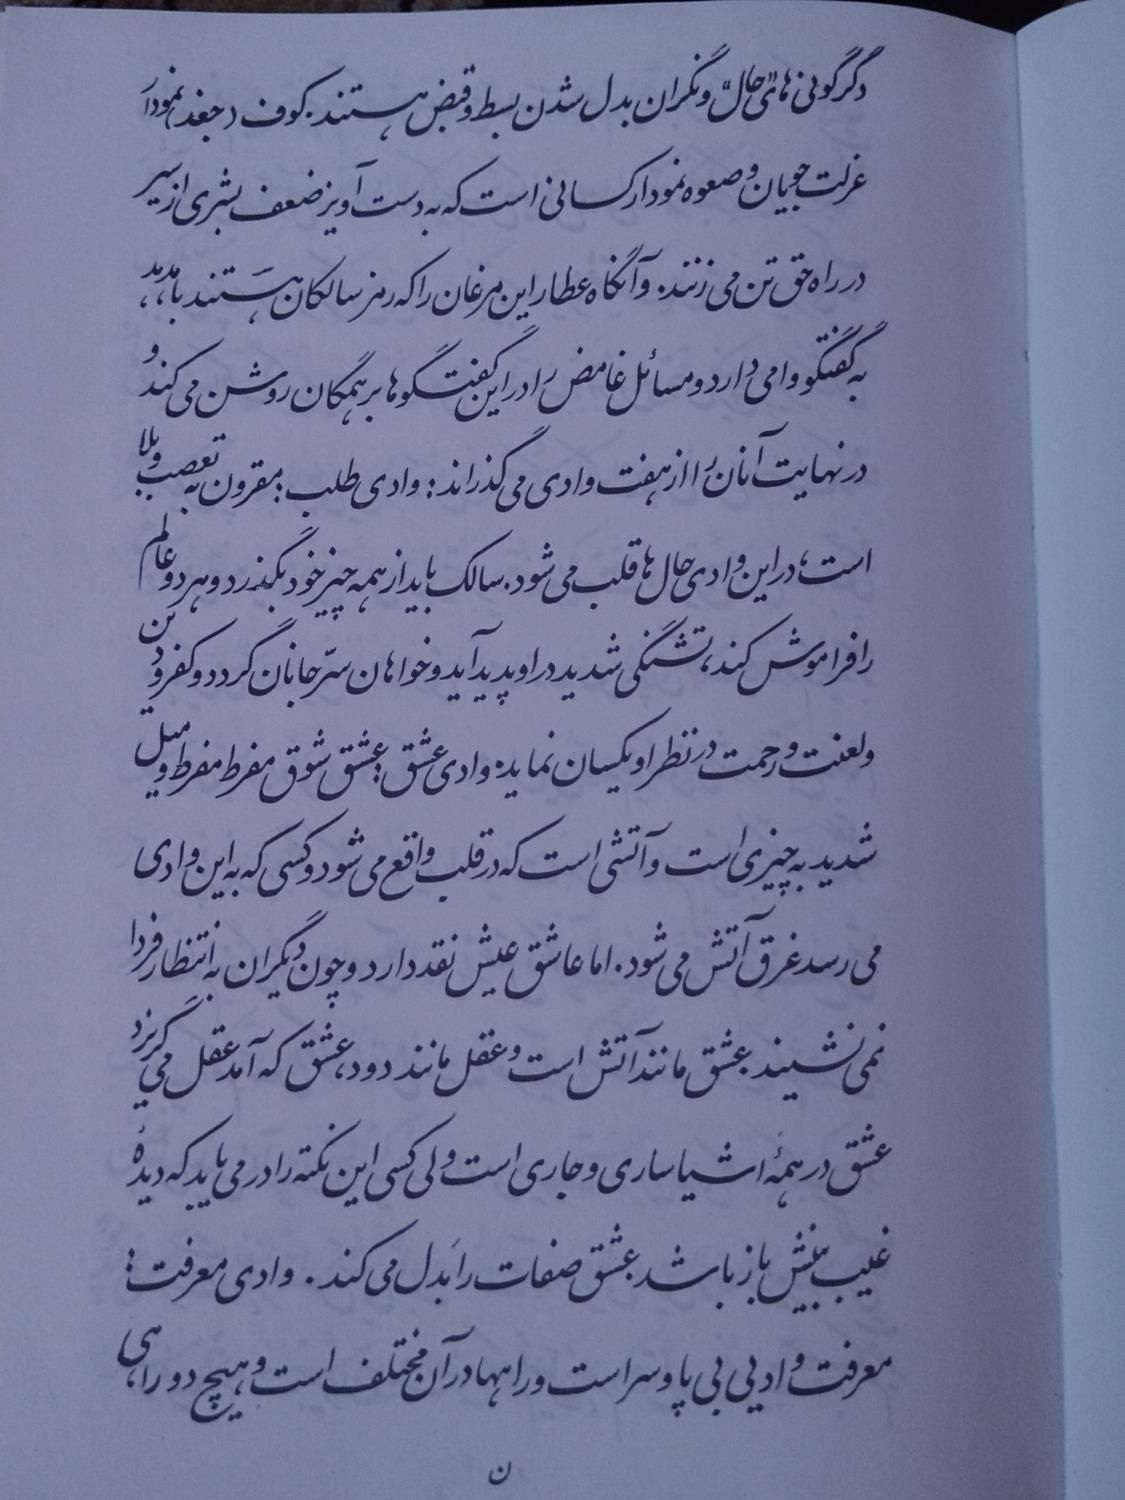 دگرگونی های "حال" و نگران بدل شدن بسط و قبض هستند. کوف (جغد) نمودار
عزلت جویان و صعوه نمودار کسانی است که به دست آویز ضعف بشری از سیر
در راه حق تن می زنند. و آنگاه عطار این مرغان را که رمز سالکان هستند با هدهد،
به گفتگو وا می دارد و مسائل غامض را در این گفتگوها بر همگان روشن می کند و
در نهایت آنان را از هفت وادی می گذراند: وادی طلب: مقرون به تعصب و بلا
است، در این وادی حال ها قلب می شود. سالک باید از همه چیز خود بگذرد و هر دو عالم
را فراموش کند، تشنگی شدید در او پدید آید و خواهان سرّ جانان گردد و کفر و دین
و لعنت و رحمت در نظر او یکسان نماید. وادی عشق: عشق شوق مفرط مفرط و میل
شدید به چیزی است و آتشی است که در قلب واقع می شود و کسی که به این وادی
می رسد غرق آتش می شود. اما عاشق عیش نقد دارد و چون دیگران به انتظار فردا
نمی نشیند. عشق مانند آتش است و عقل مانند دود، عشق که آمد عقل می گریزد
عشق در همهٔ اشیا ساری و جاری است ولی کسی این نکته را در می یابد که دیدهٔ
غیب بینش باز باشد. عشق صفات را بَدل می کند. وادی معرفت:
معرفت وادیی بی پا و سر است و راهها در آن مختلف است و هیچ دو راهی
ن